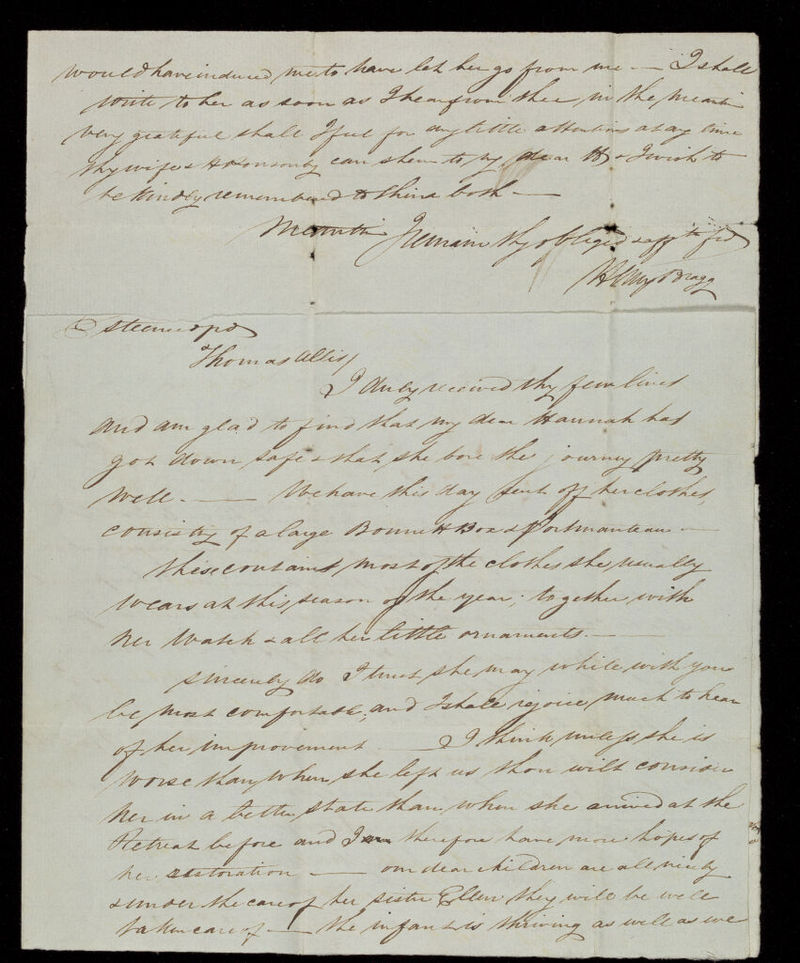 would have induced me to have let her go from me — I shall
write to her as soon as I hear from thee in the mean
very grateful shall I feel for any little attentions at any time
thy wife & can shew to my dear H & I wish to
be kindly remembered to thine both —
I remain thy obliged & aff
Bragg
Esteemed
Thomas Allis/
I duly received thy few lines
and am glad to find that my dear Hannah has
got down safe & that she bore the journey pretty
well. — We have this day sent off her clothes,
consisting of a large Bonnett Box & Portmanteau —
these contains most of the clothes she usually
wears at this season of the year; together with
her Watch & all her little ornaments. —
sincerely do I trust she may while with you
be most comfortable, and I shall rejoice much to hear
of her improvement — I think unless she is
worse than when she left us thou wilt consider
her in a better state than when she arrived at the
Retreat before and I therefore have more hopes of
her restoration — our dear children are all nicely
& under the care of her sister Ellen they will be well
taken care of — the infant is thriving as well as we